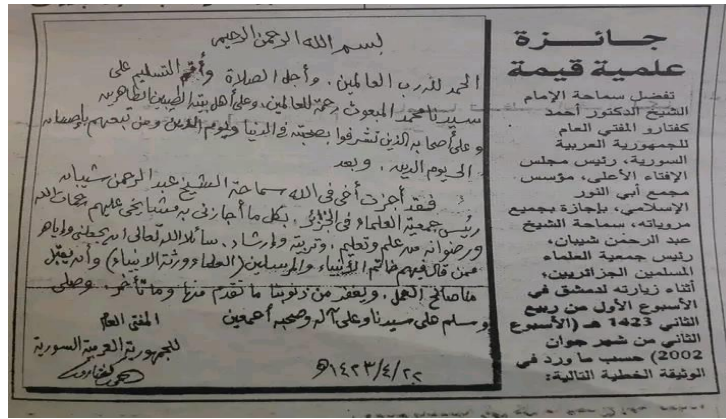 جائزة
علمية قيمة
تفضل سماحة الإمام
الشيخ الدكتور أحمد
كفتارو المفتي العام
للجمهورية العربية
السورية، رئيس مجلس
الإفتاء الأعلى، مؤسس
مجمع أبي النور
الإسلامي، بإجازة بجميع
مروياته، سماحة الشيخ
عبد الرحمن شيبان،
رئيس جمعية العلماء
المسلمين الجزائريين،
أثناء زيارته لدمشق في
الأسبوع الأول من ربيع
الثاني 1423 هـ (الأسبوع
الثاني من شهر جوان
2002) حسب ما ورد في
الوثيقة الخطية التالية:
بسم الله الرحمن الرحيم
الحمد لله رب العالمين، وأجل الصلاة وأتم التسليم على
سيدنا محمد المبعوث رحمة للعالمين، وعلى أهل بيته الطيبين الطاهرين
وعلى أصحابه الذين تشرفوا بصحبته في الدنيا ويوم الدين ومن تبعهم بإحسان
إلى يوم الدين. وبعد
فقد أجزت أخي في الله سماحة الشيخ عبد الرحمن شيبان
رئيس جمعية العلماء في الجزائر، بكل ما أجازني به مشايخي عليهم رحمات الله
ورضوانه من علم وتعليم، وتربية وإرشاد، سائلا الله تعالى أن يجعلني وإياهم
ممن قال فيهم خاتم الأنبياء والمرسلين (العلماء ورثة الأنبياء) وأن يقبل
منا صالح العمل، ويغفر من ذنوبنا ما تقدم منها وما تأخر. وصلى
وسلم على سيدنا وعلى آله وصحبه أجمعين
المفتي العام
للجمهورية العربية السورية
١٤٢٣/٤/٢٢هـ